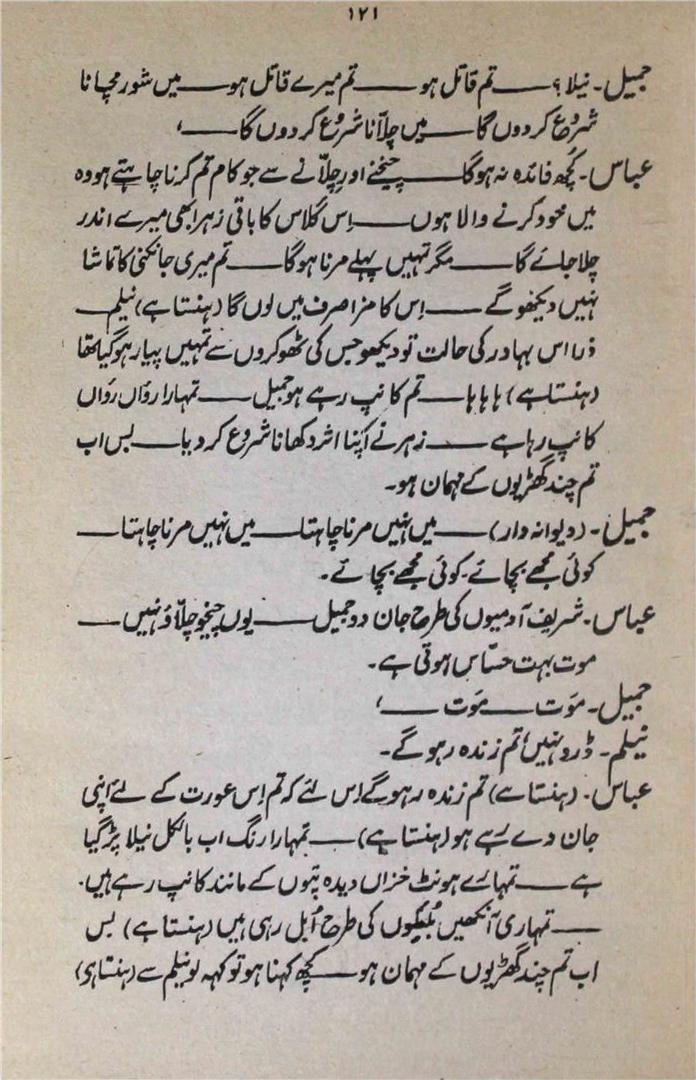 ۱۲۱
جمیل۔ نیلا؟ —— تم قاتل ہو —— تم میرے قاتل ہو —— میں شور مچانا
شروع کر دوں گا —— میں چلّانا شروع کر دوں گا ——!
عباس۔ کچھ فائدہ نہ ہوگا —— چیخنے اور چلّانے سے جو کام تم کرنا چاہتے ہو وہ
میں خود کرنے والا ہوں —— اِس گلاس کا باقی زہر ابھی میرے اندر
چلا جائے گا —— مگر تمہیں پہلے مرنا ہوگا —— تم میری جانکنی کا تماشا
نہیں دیکھو گے —— اِس کا مزا صرف میں لوں گا (ہنستا ہے) نیلم ——
ذرا اس بہادر کی حالت تو دیکھو جس کی ٹھوکروں سے تمہیں پیار ہو گیا تھا
(ہنستا ہے) ہا ہا ہا —— تم کانپ رہے ہو جمیل —— تمہارا رؤاں رؤاں
کانپ رہا ہے —— زہر نے اپنا اثر دکھانا شروع کر دیا —— بس اب
تم چند گھڑیوں کے مہمان ہو۔
جمیل۔ (دیوانہ وار) —— میں نہیں مرنا چاہتا —— میں نہیں مرنا چاہتا ——
کوئی مجھے بچائے۔ کوئی مجھے بچائے۔
عباس۔ شریف آدمیوں کی طرح جان دو جمیل —— یوں چیخو چلّاؤ نہیں ——
موت بہت حسّاس ہوتی ہے۔
جمیل۔ مَوت —— مَوت ——!
نیلم۔ ڈرو نہیں تم زندہ رہو گے۔
عباس۔ (ہنستا ہے) تم زندہ رہو گے اِس لئے کہ تم اِس عورت کے لئے اپنی
جان دے رہے ہو (ہنستا ہے) —— تمہارا رنگ اب بالکل نیلا پڑ گیا
ہے —— تمہارے ہونٹ خزاں دیدہ پتوں کے مانند کانپ رہے ہیں۔
—— تمہاری آنکھیں بُلبُلوں کی طرح اُبل رہی ہیں (ہنستا ہے) بس
اب تم چند گھڑیوں کے مہمان ہو —— کچھ کہنا ہو تو کہہ لو نیلم سے (ہنستا ہی)